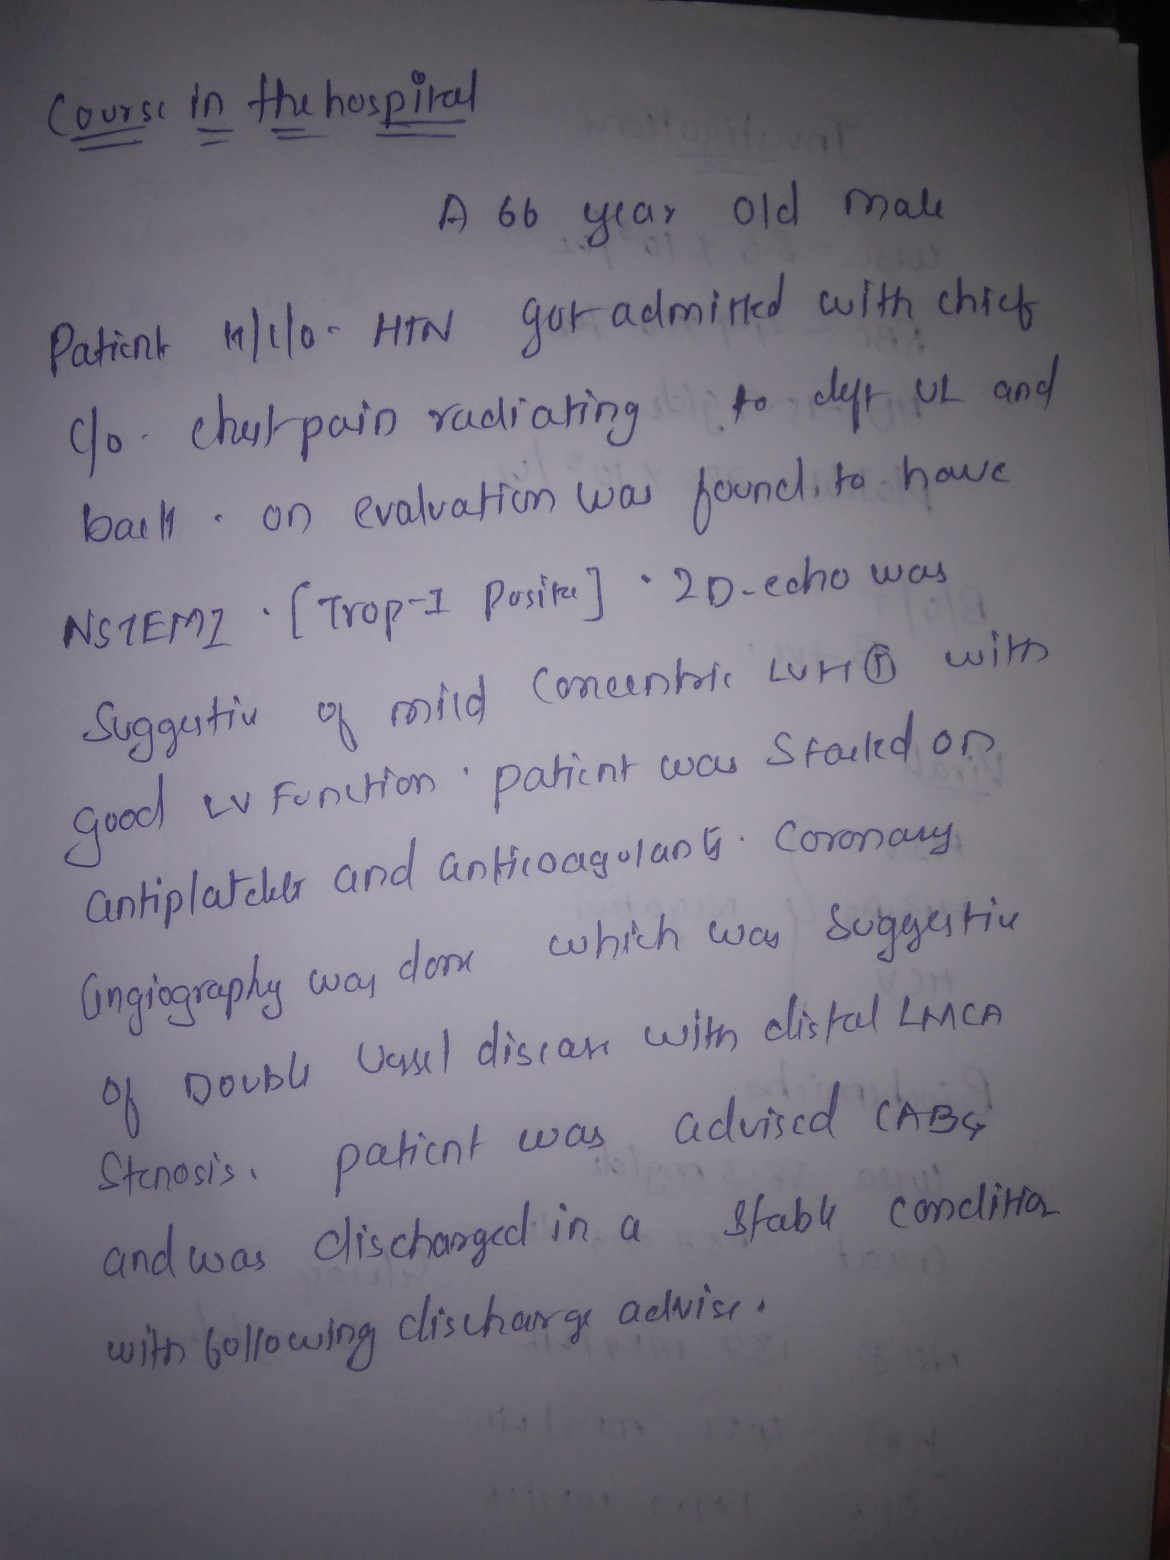 Course in the hospital
A 66 year old male
Patient K/c/o HTN got admitted with chief
c/o chest pain radiating to left UL and
back. on evaluation was found to have
NSTEMI. [Trop-I Positive]. 2D-echo was
Suggestive of mild Concentric LVH with
good LV Function. patient was started on
antiplatelets and anticoagulants. Coronary
angiography was done which was suggestive
of Double vessel disease with distal LMCA
Stenosis. patient was advised CABG
and was discharged in a stable condition
with following discharge advise.